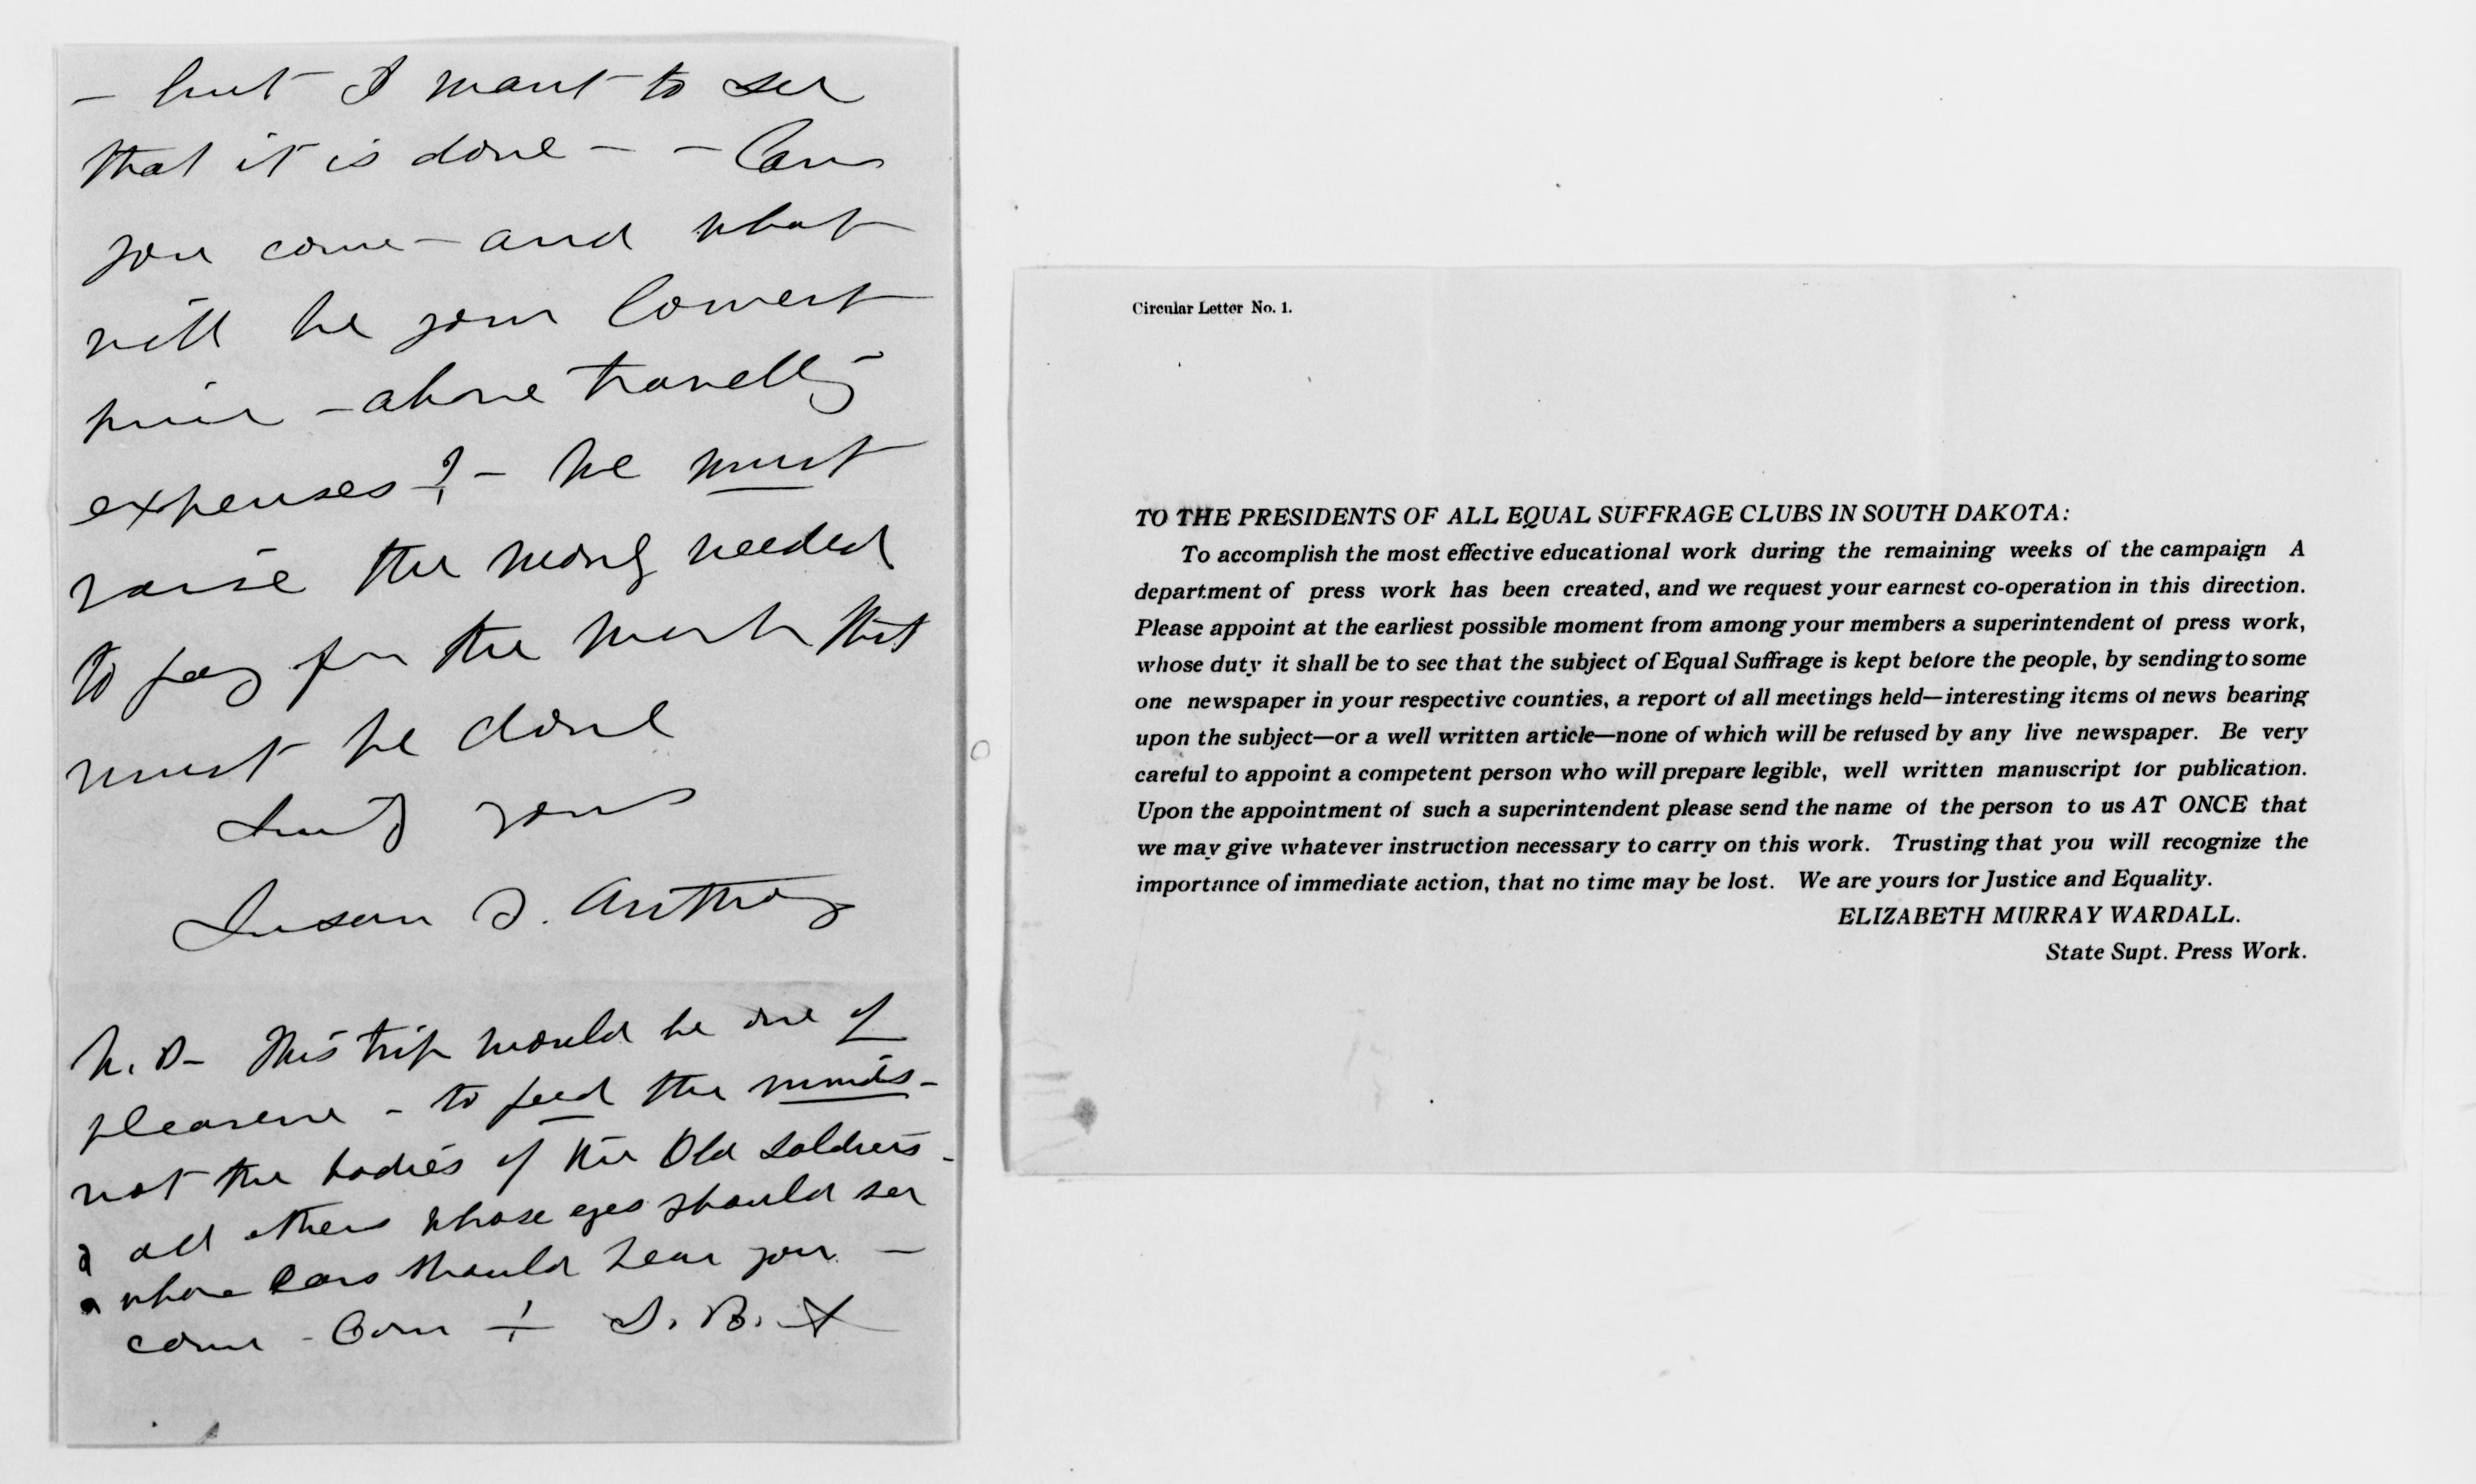 – but I want to see
that it is done – – Can
you come – and what
will be your lowest
price – above travelling
expenses? – We must
raise the money needed
to pay for the work that
must be done
Sincerely yours
Susan B. Anthony
N.B – This trip would be one of
pleasure – to feed the minds –
not the bodies of the Old Soldiers –
& all others whose eyes should see
& whose ears should hear you –
come – Come ! S. B. A
Circular Letter No. 1.
TO THE PRESIDENTS OF ALL EQUAL SUFFRAGE CLUBS IN SOUTH DAKOTA:
To accomplish the most effective educational work during the remaining weeks of the campaign A
department of press work has been created, and we request your earnest co-operation in this direction.
Please appoint at the earliest possible moment from among your members a superintendent of press work,
whose duty it shall be to see that the subject of Equal Suffrage is kept before the people, by sending to some
one newspaper in your respective counties, a report of all meetings held—interesting items of news bearing
upon the subject—or a well written article—none of which will be refused by any live newspaper. Be very
careful to appoint a competent person who will prepare legible, well written manuscript for publication.
Upon the appointment of such a superintendent please send the name of the person to us AT ONCE that
we may give whatever instruction necessary to carry on this work. Trusting that you will recognize the
importance of immediate action, that no time may be lost. We are yours for Justice and Equality.
ELIZABETH MURRAY WARDALL.
State Supt. Press Work.